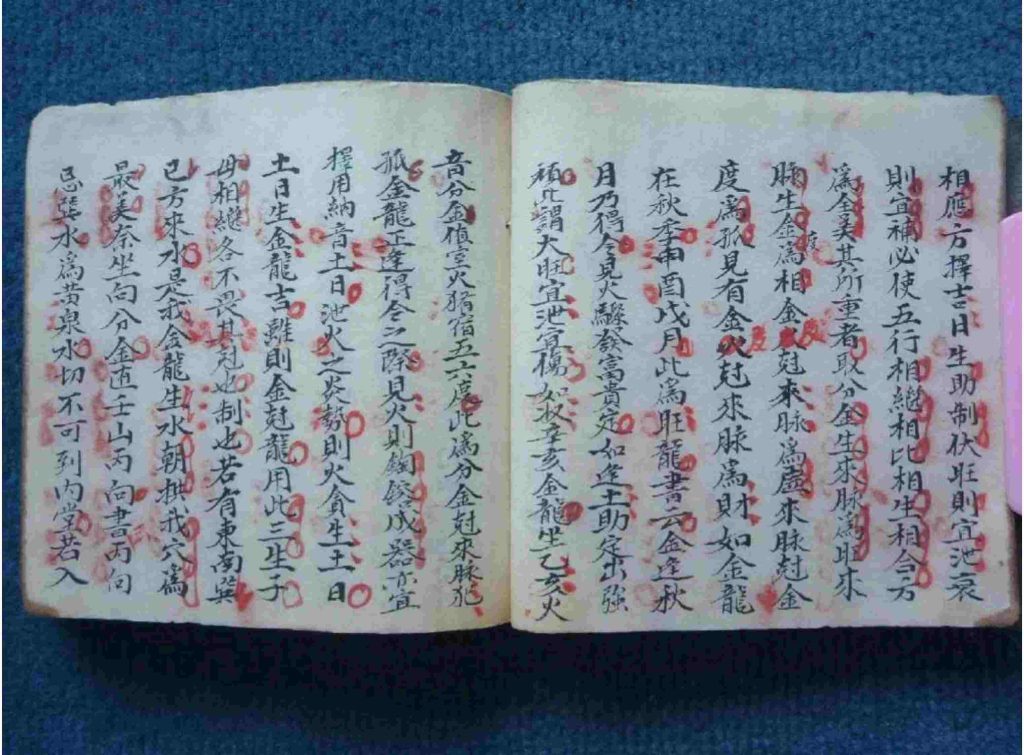 相應方擇吉日生助制伏旺則宜池衰
則宜補必使五行相繼相比相生相合方
為全美其所重者取分金生來脉為旺來
脉生金為相金尅來脉為虛來脉尅金
度為孤見有金火尅來脉為財如金龍
在秋季申酉戊月此為旺龍書云金逢秋
月乃得令見火驛幹富貴定如逢土助定出強
積此謂大旺宜泄宜傷如癸亥金龍坐乙亥火
音分金值室火猪宿五六度此為分金尅來脉犯
孤金龍正逢得令之際見火則鋳發成器宗宜
擇用納音土日池火之炎勢則火貪生土日
土日生金龍吉雖則金尅龍用此三生子
母相繼各不畏其尅也制也若有東南巽
巳方來水是我金龍生水朝拱我穴為
最美奈坐向分金直壬山丙向書丙向
忌巽水為黄泉水切不可到内堂若入